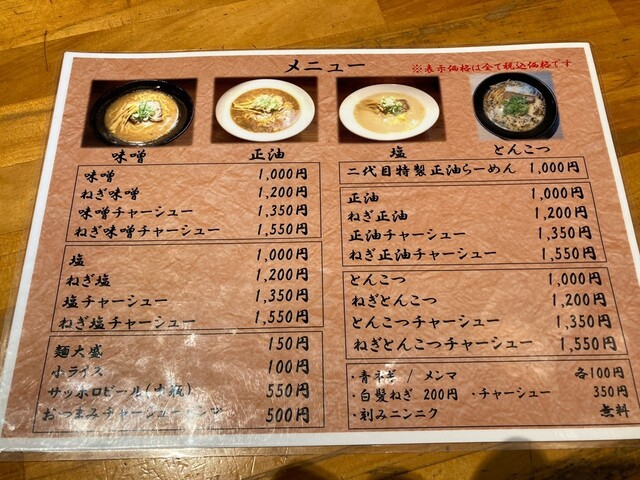 メニュー
※表示価格は全て税込価格です
味噌
正油
塩
とんこつ
味噌 1,000円
ねぎ味噌 1,200円
味噌チャーシュー 1,350円
ねぎ味噌チャーシュー 1,550円
塩 1,000円
ねぎ塩 1,200円
塩チャーシュー 1,350円
ねぎ塩チャーシュー 1,550円
麺大盛 150円
小ライス 100円
サッポロビール(中瓶) 550円
おつまみチャーシュー 500円
二代目特製正油らーめん 1,000円
正油 1,000円
ねぎ正油 1,200円
正油チャーシュー 1,350円
ねぎ正油チャーシュー 1,550円
とんこつ 1,000円
ねぎとんこつ 1,200円
とんこつチャーシュー 1,350円
ねぎとんこつチャーシュー 1,550円
・青ネギ / メンマ 各100円
・白髪ねぎ 200円 ・チャーシュー 350円
・刻みニンニク 無料